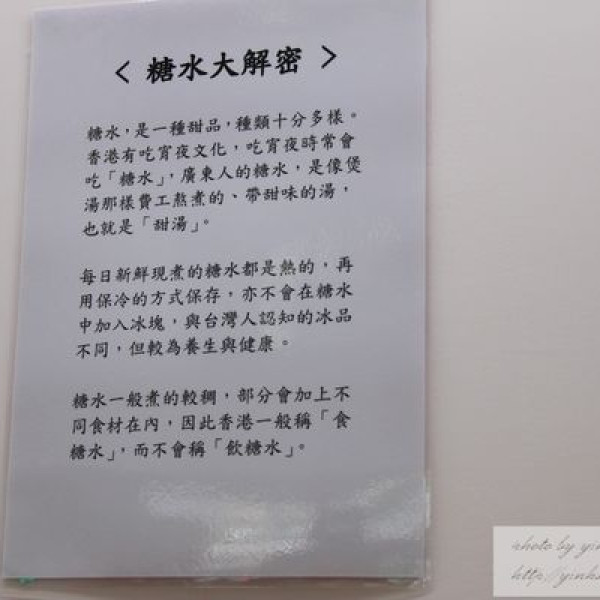 < 糖水大解密 >
糖水，是一種甜品，種類十分多樣。
香港有吃宵夜文化，吃宵夜時常會
吃「糖水」，廣東人的糖水，是像煲
湯那樣費工熬煮的、帶甜味的湯，
也就是「甜湯」。
每日新鮮現煮的糖水都是熱的，再
用保冷的方式保存，亦不會在糖水
中加入冰塊，與台灣人認知的冰品
不同，但較為養生與健康。
糖水一般煮的較稠，部分會加上不
同食材在內，因此香港一般稱「食
糖水」，而不會稱「飲糖水」。
photo by